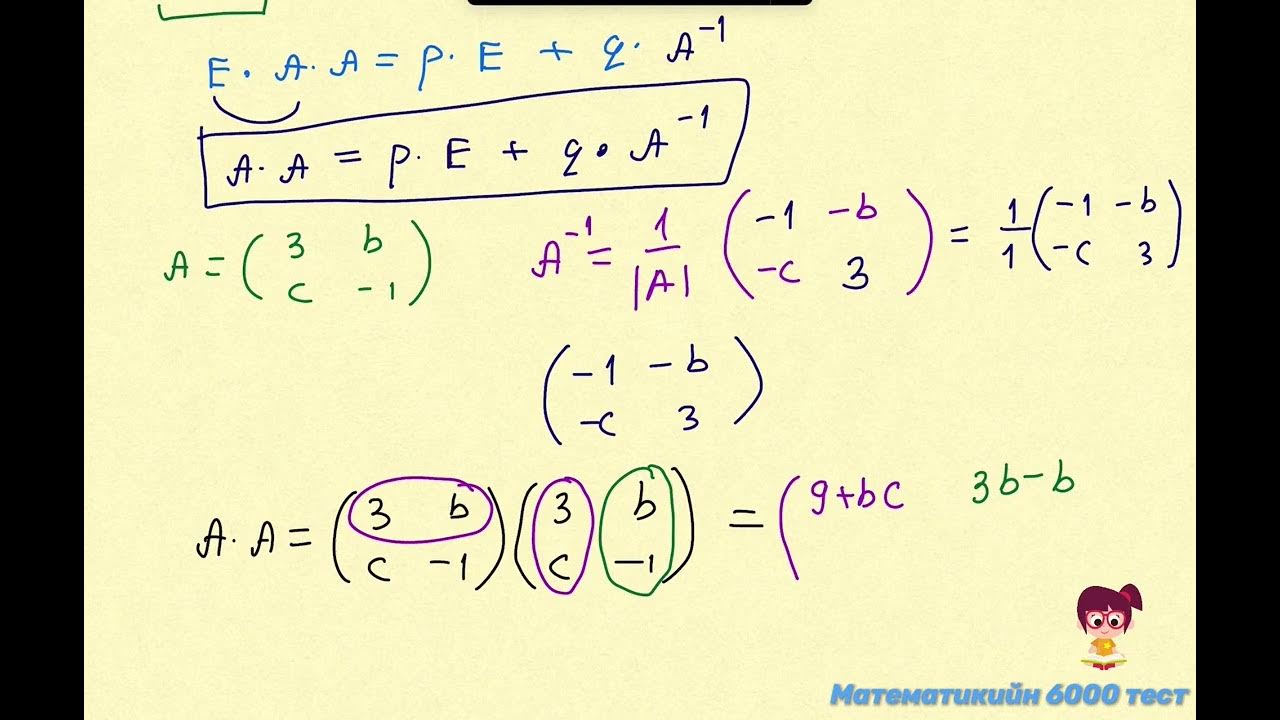 E · A · A = p · E + q · A⁻¹
A · A = p · E + q · A⁻¹
A = ( 3 b ; c -1 )
A⁻¹ = 1/|A| ( -1 -b ; -c 3 ) = 1/1 ( -1 -b ; -c 3 )
( -1 -b ; -c 3 )
A · A = ( 3 b ; c -1 ) ( 3 b ; c -1 ) = ( 9+bc 3b-b
Математикийн 6000 тест